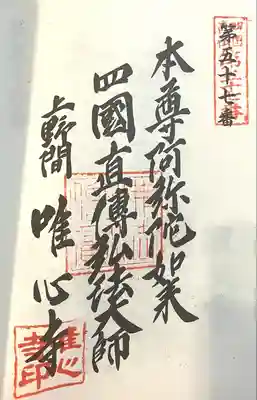 第五十七番
本尊阿弥陀如来
四國直傳弘法大師
上野間 唯心寺
唯心
寺印